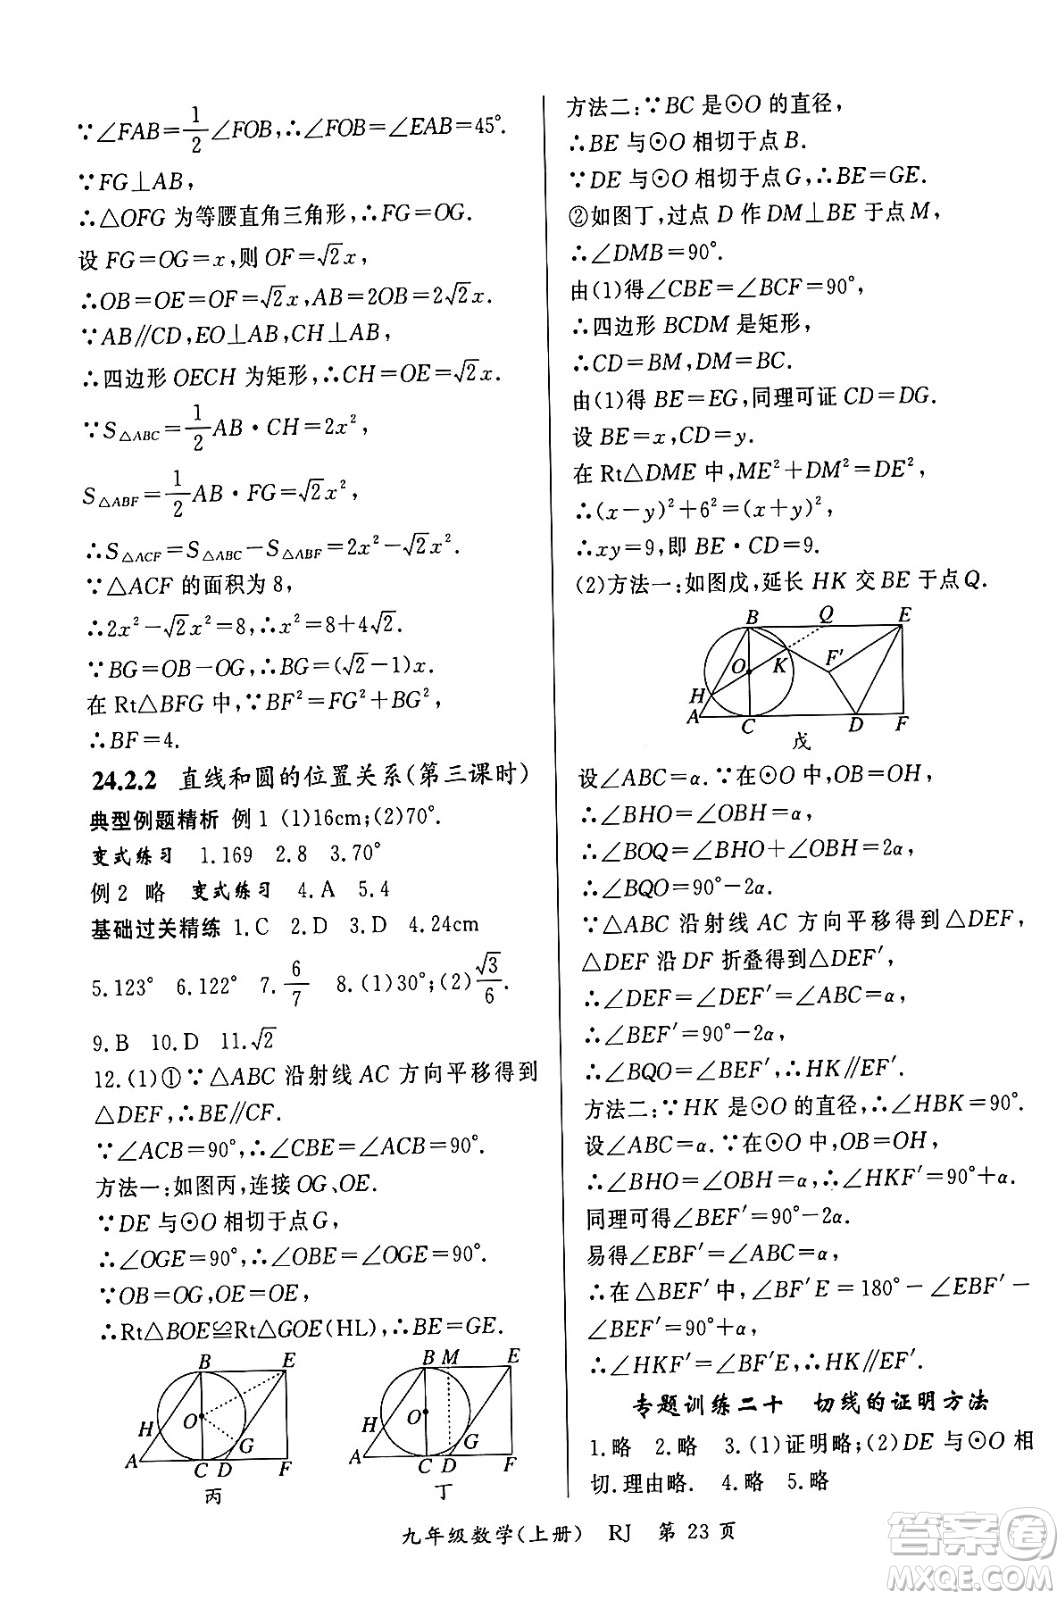 ∵∠FAB=1/2∠FOB,∴∠FOB=∠EAB=45°.
∵FG⊥AB,
∴△OFG 为等腰直角三角形,∴FG=OG.
设 FG=OG=x,则 OF=√2x,
∴OB=OE=OF=√2x,AB=2OB=2√2x.
∵AB∥CD,EO⊥AB,CH⊥AB,
∴四边形 OECH 为矩形,∴CH=OE=√2x.
∵S△ABC=1/2AB·CH=2x²,
S△ABF=1/2AB·FG=√2x²,
∴S△ACF=S△ABC−S△ABF=2x²−√2x².
∵△ACF 的面积为 8,
∴2x²−√2x²=8,∴x²=8+4√2.
∵BG=OB−OG,∴BG=(√2−1)x.
在 Rt△BFG 中,∵BF²=FG²+BG²
∴BF=4.
24.2.2 直线和圆的位置关系(第三课时)
典型例题精析 例1 (1)16cm;(2)70°.
变式练习 1.169 2.8 3.70°
例2 略 变式练习 4.A 5.4
基础过关精练 1.C 2.D 3.D 4.24cm
5.123° 6.122° 7.6/7 8.(1)30°;(2)√3/6.
9.B 10.D 11.√2
12.(1)①∵△ABC 沿射线 AC 方向平移得到
△DEF,∴BE∥CF.
∵∠ACB=90°,∴∠CBE=∠ACB=90°.
方法一:如图丙,连接 OG、OE.
∵DE 与⊙O 相切于点 G,
∴∠OGE=90°,∴∠OBE=∠OGE=90°.
∵OB=OG,OE=OE,
∴Rt△BOE≌Rt△GOE(HL),∴BE=GE.
B E
H O G
A C D F
丙
B M E
H O G
A C D F
丁
方法二:∵BC 是⊙O 的直径,
∴BE 与⊙O 相切于点 B.
∵DE 与⊙O 相切于点 G,∴BE=GE.
②如图丁,过点 D 作 DM⊥BE 于点 M,
∴∠DMB=90°.
由(1)得∠CBE=∠BCF=90°,
∴四边形 BCDM 是矩形,
∴CD=BM,DM=BC.
由(1)得 BE=EG,同理可证 CD=DG.
设 BE=x,CD=y.
在 Rt△DME 中,ME²+DM²=DE²,
∴(x−y)²+6²=(x+y)²,
∴xy=9,即 BE·CD=9.
(2)方法一:如图戊,延长 HK 交 BE 于点 Q.
B Q E
O K F′
H
A C D F
戊
设∠ABC=α.∵在⊙O 中,OB=OH,
∴∠BHO=∠OBH=α,
∴∠BOQ=∠BHO+∠OBH=2α,
∴∠BQO=90°−2α.
∵△ABC 沿射线 AC 方向平移得到△DEF,
△DEF 沿 DF 折叠得到△DEF′,
∴∠DEF=∠DEF′=∠ABC=α,
∴∠BEF′=90°−2α,
∴∠BQO=∠BEF′,∴HK∥EF′.
方法二:∵HK 是⊙O 的直径,∴∠HBK=90°.
设∠ABC=α.∵在⊙O 中,OB=OH,
∴∠BHO=∠OBH=α,∴∠HKF′=90°+α.
同理可得∠BEF′=90°−2α.
易得∠EBF′=∠ABC=α,
∴在△BEF′中,∠BF′E=180°−∠EBF′−
∠BEF′=90°+α,
∴∠HKF′=∠BF′E,∴HK∥EF′.
专题训练二十 切线的证明方法
1.略 2.略 3.(1)证明略;(2)DE 与⊙O 相
切.理由略. 4.略 5.略
九年级数学(上册) RJ 第 23 页
答案圈
MXQE.COM